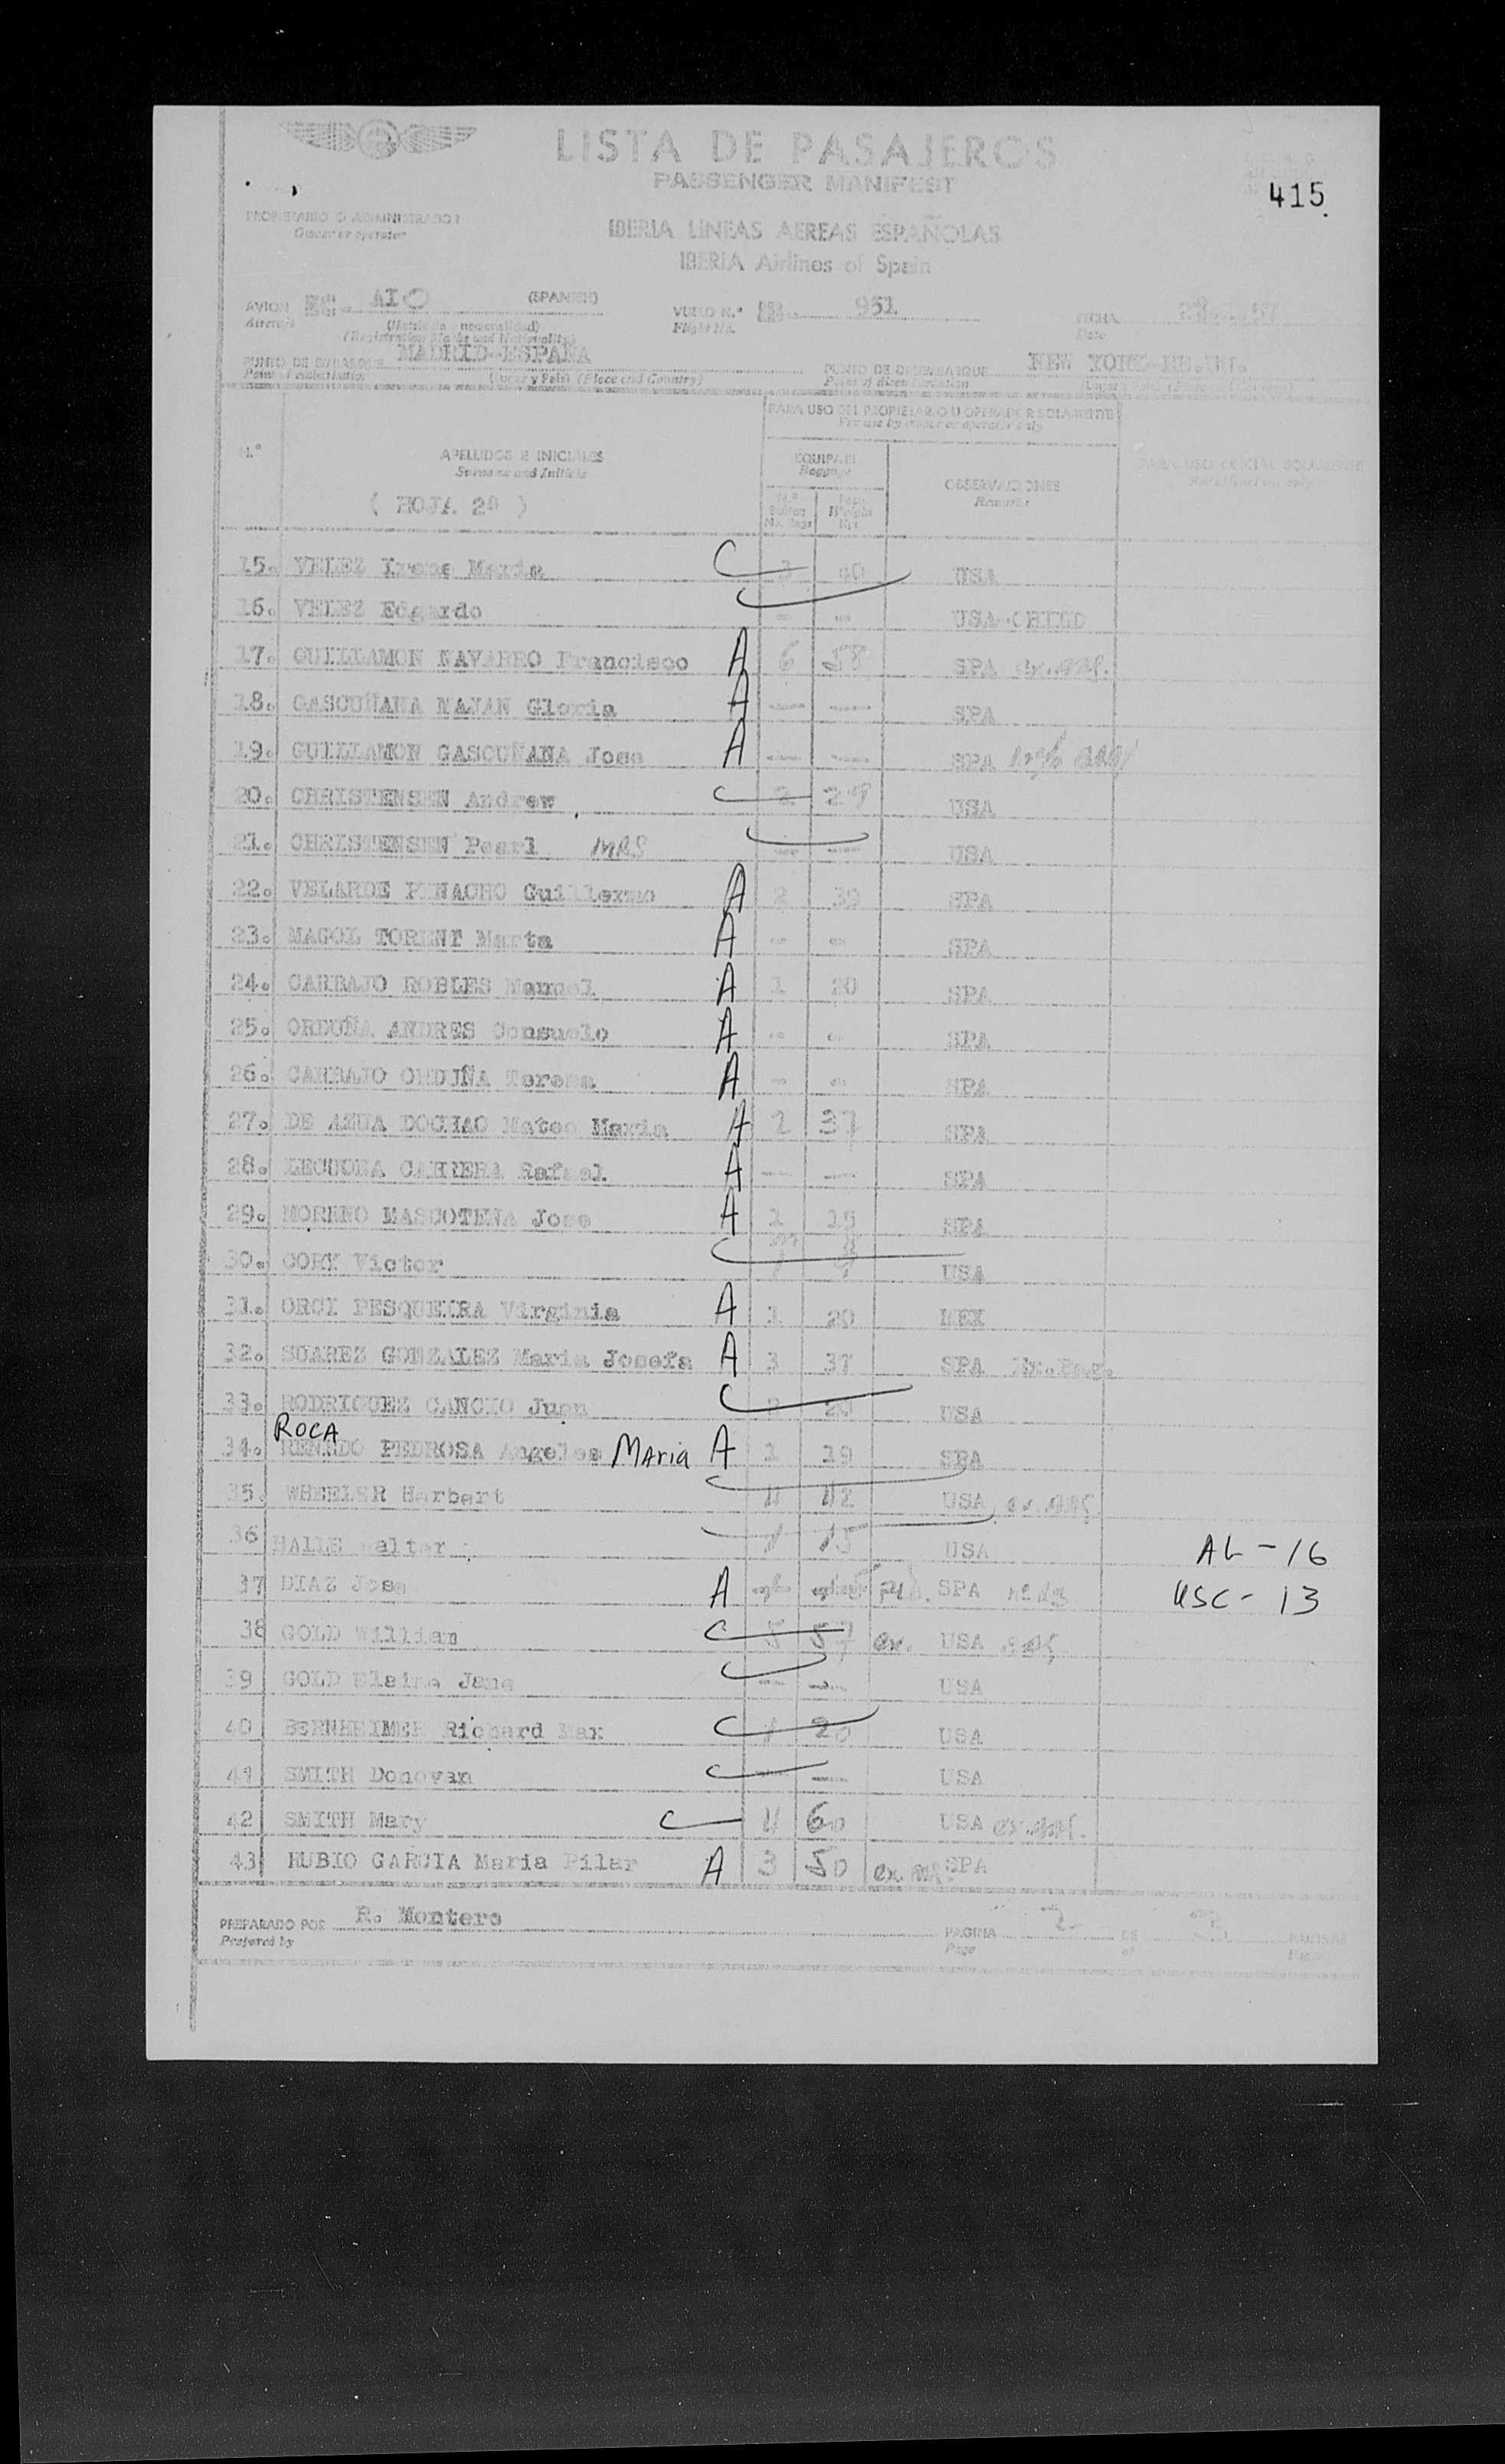 LISTA DE PASAJEROS
PASSENGER MANIFEST
415
PROPIETARIO O ADMINISTRADOR
Owner or operator
IBERIA LINEAS AEREAS ESPAÑOLAS
IBERIA Airlines of Spain
AVION EC- AIO (SPANISH) VUELO N.º IB. 951 FECHA
Aircraft (Matrícula y nacionalidad) Flight No. Date
(Registration Marks and Nationality)
PUNTO DE EMBARQUE MADRID-ESPAÑA PUNTO DE DESEMBARQUE NEW YORK-EE.UU.
Point of embarkation (Lugar y País) (Place and Country) Point of disembarkation
PARA USO DEL PROPIETARIO U OPERADOR SOLAMENTE
For use by owner or operator only
N.º APELLIDOS E INICIALES EQUIPAJE PARA USO OFICIAL SOLAMENTE
Surname and Initials Baggage For official use only
OBSERVACIONES
Remarks
( HOJA 2ª ) N.º Bultos Peso
No. Bags Weight Kgs.
15. VELEZ Irene Maria C 3 40 USA
16. VELEZ Edgardo - - USA-CHILD
17. GUILLAMON NAVARRO Francisco A 6 58 SPA
18. GASCUÑANA MAJAN Gloria A — — SPA
19. GUILLAMON GASCUÑANA Jose A — — SPA
20. CHRISTENSEN Andrew C 2 29 USA
21. CHRISTENSEN Pearl MRS — — USA
22. VELARDE PINACHO Guillermo A 2 39 SPA
23. MAGOL TORENT Marta A - - SPA
24. CARBAJO ROBLES Manuel A 1 20 SPA
25. ORDUÑA ANDRES Consuelo A - - SPA
26. CARBAJO ORDUÑA Teresa A - - SPA
27. DE AZUA DOCHAO Mateo Maria A 2 37 SPA
28. LECUONA CABRERA Rafael A — — SPA
29. MORENO MASCOTENA Jose A 1 15 SPA
30. CORY Victor C USA
31. ORCI PESQUEIRA Virginia A 1 20 MEX
32. SUAREZ GONZALEZ Maria Josefa A 3 37 SPA Ex.Bag.
33. RODRIGUEZ CANCIO Juan C 2 20 USA
ROCA
34. RENEDO PEDROSA Angeles Maria A 1 19 SPA
35. WHEELER Herbert C 4 42 USA
36 HALLE Walter 1 15 USA AL-16
37 DIAZ Jose A SPA USC-13
38 GOLD Willian C 5 57 ex. USA
39 GOLD Elaine Jane C — — USA
40 BERNHEIMER Richard Max C 1 20 USA
41 SMITH Donovan C — — USA
42 SMITH Mary C 4 60 USA
43 RUBIO GARCIA Maria Pilar A 3 50 SPA
PREPARADO POR R. Montero PAGINA 2 DE
Prepared by Page of